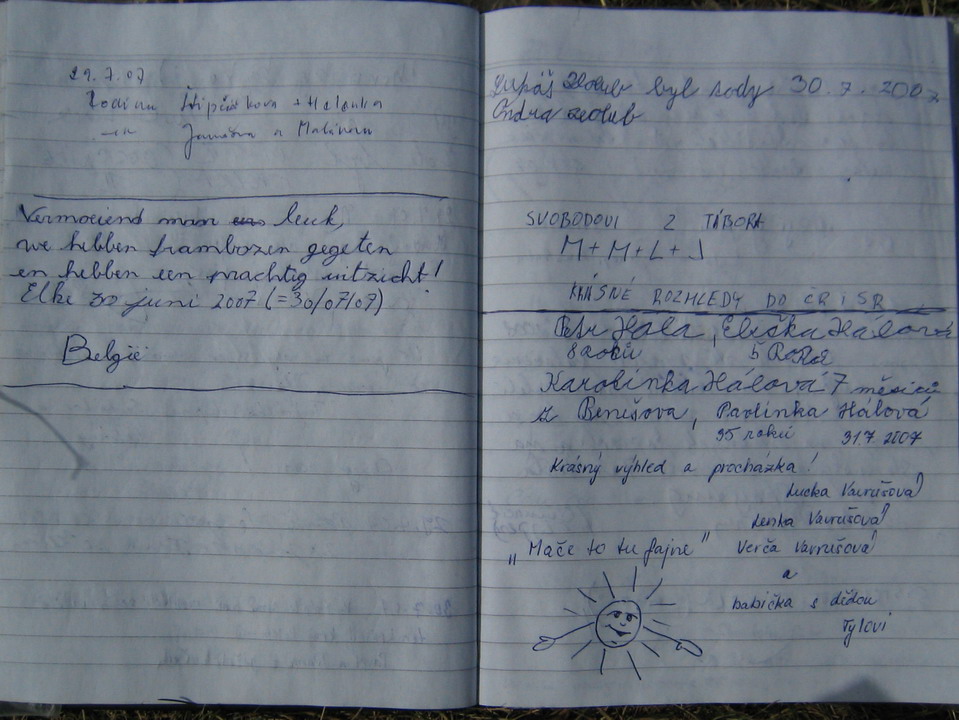 29.7.07
Rodina + Helenka
a
Vermoeiend maar leuk,
we hebben frambozen gegeten
en hebben een prachtig uitzicht!
Elke 30 juni 2007 (=30/07/07)
België
Lukáš Holub byl tady 30.7.2007
Ondra Holub
SVOBODOVI Z TÁBORA
M+M+L+J
KRÁSNÉ ROZHLEDY DO ČR I SR
Petr Hála, Eliška Hálová
8 roků 5 Roků
Karolínka Hálová 7 měsíců
z Benešova, Pavlínka Hálová
35 roků 31.7.2007
Krásný výhled a procházka!
Lucka Vavrušová
Lenka Vavrušová
„Mače to tu fajne" Verča Vavrušová
a
babička s dědou
Tylovi